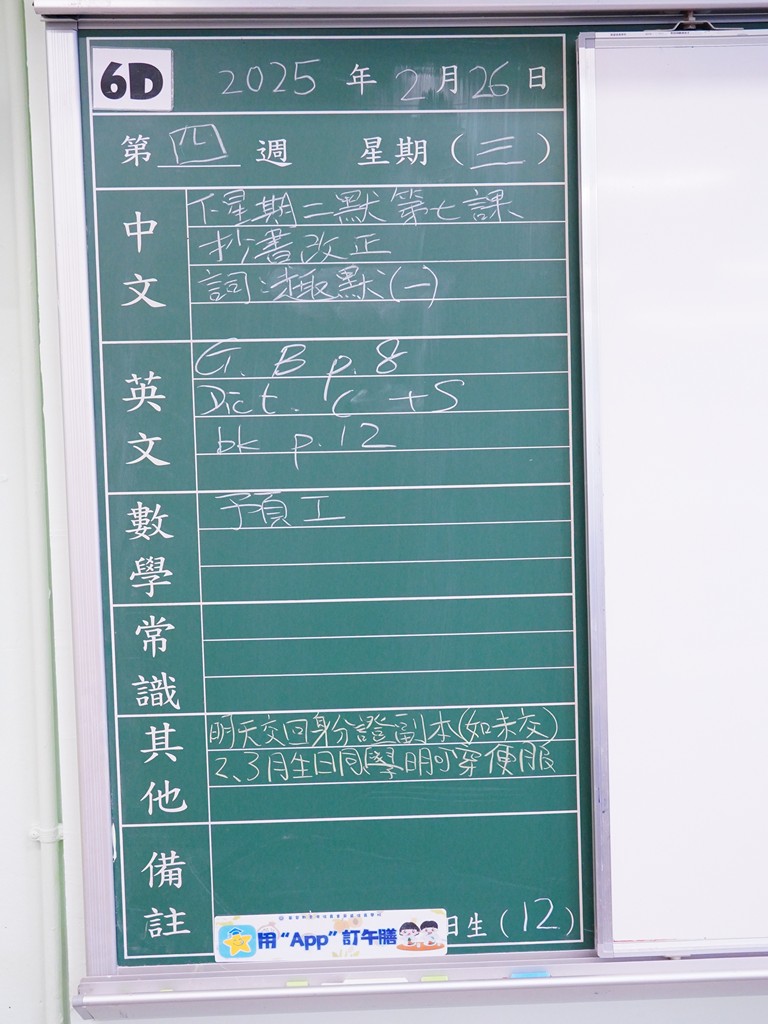 6D 2025 年 2 月 26 日
第 四 週 星期 (三)
中文
下星期二默第七課
抄書改正
詞趣默(一)
英文
G. B p. 8
Dict. C + S
bk p. 12
數學
預工
常識
其他
明天交回身分證副本(如未交)
2、3月生日同學明可穿便服
備註
日生 (12)
用“App”訂午膳